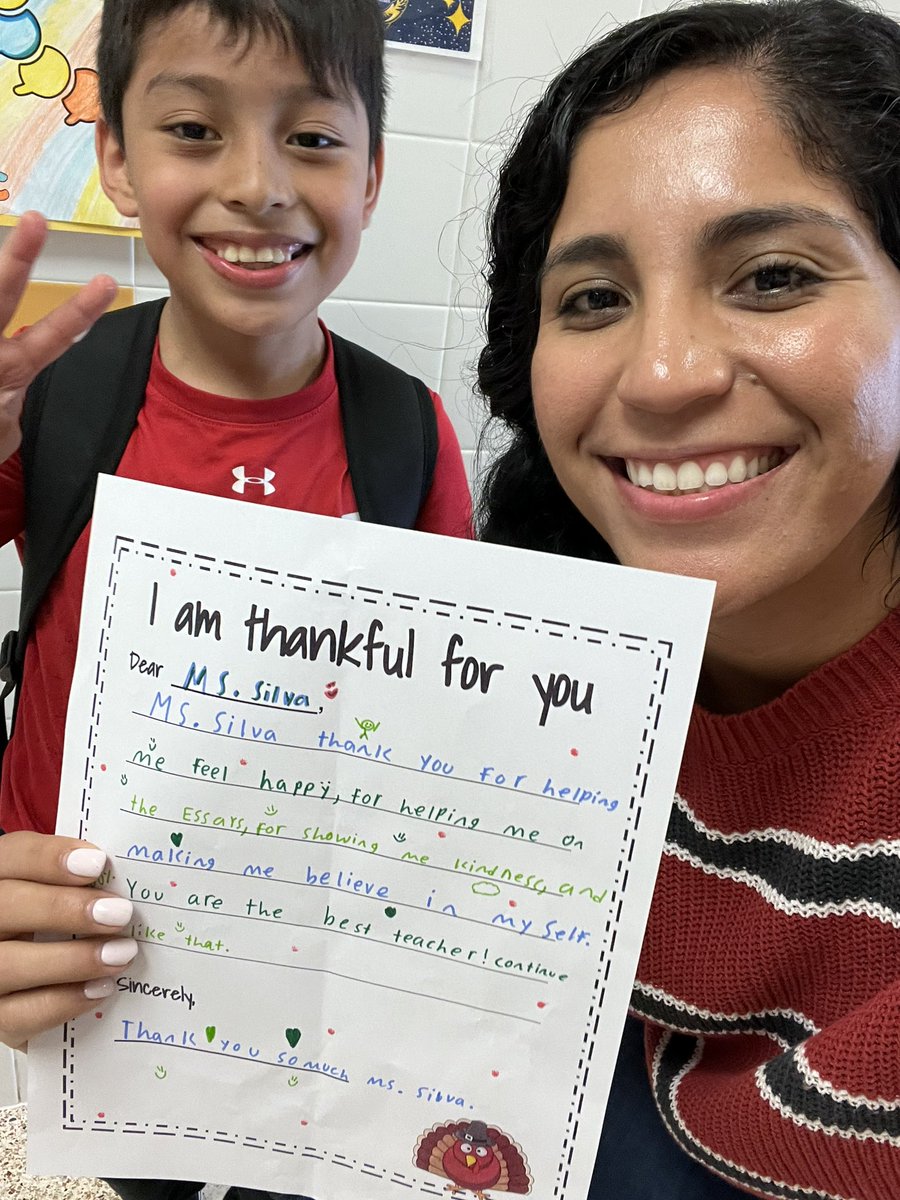 I am thankful for you
Dear MS. Silva,
MS. Silva thank you for helping
me feel happy, for helping me on
the Essays, for showing me kindness, and
making me believe in my self.
You are the best teacher! continue
like that.
Sincerely,
Thank you so much Ms. Silva.